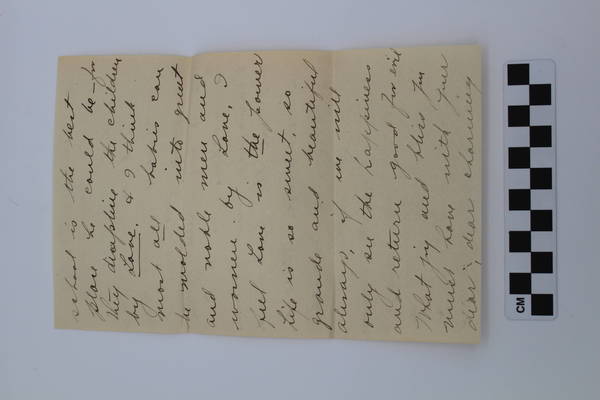 school is the best
place he could be - for
they discipline the children
by Love. & I think
most all babies can
be molded into great
and noble men and
women by Love, I
feel Love is the power
Life is so sweet, so
grande and beautiful
always, if we will
only see the happiness
and return good for evil
What joy and bliss I'm
must have with your
dear, dear charming
CM